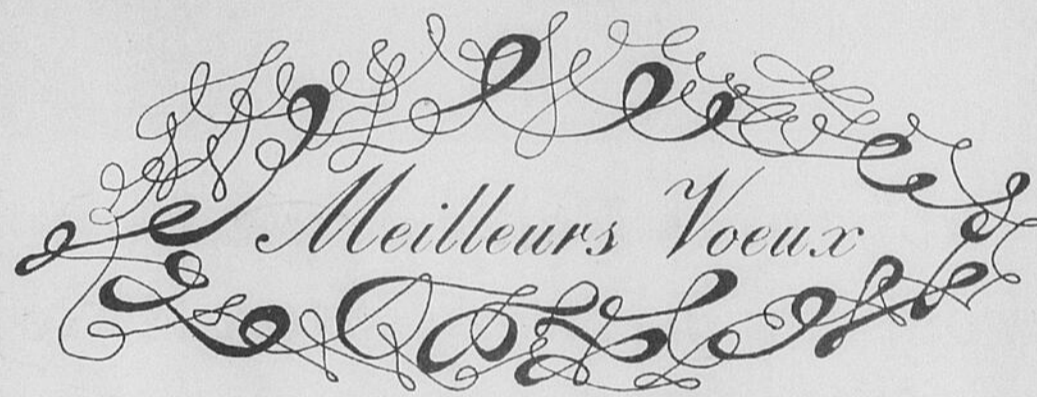 Meilleurs Voeux